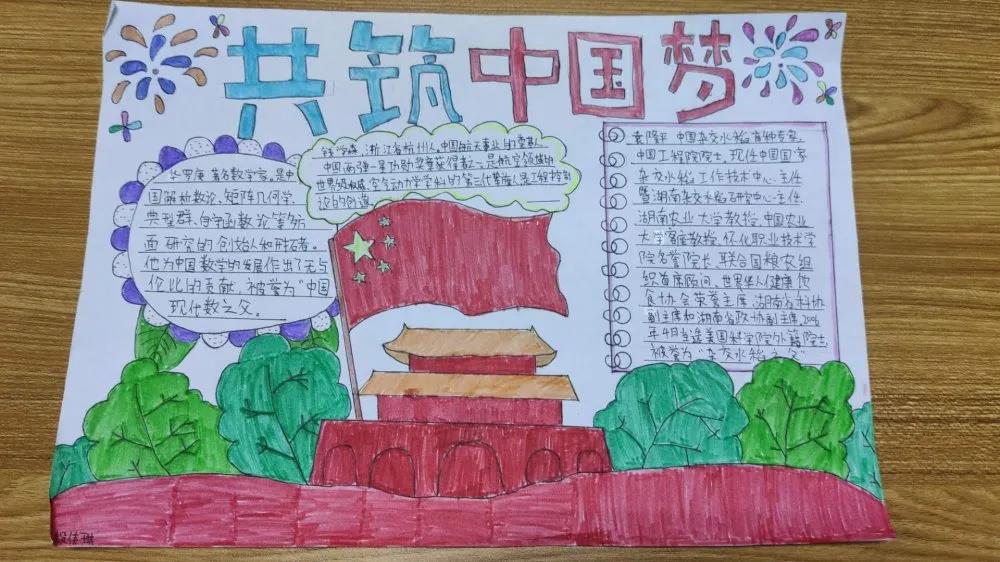 共筑中国梦
华罗庚 著名数学家,是中
国解析数论、矩阵几何学、
典型群、自守函数论等多方
面研究的创始人和开拓者。
他为中国数学的发展作出了无与
伦比的贡献,被誉为“中国
现代数之父。
钱学森,浙江省杭州人,中国航天事业的奠基人,
中国两弹一星功勋奖章获得者之一,是航空领域的
世界级权威、空气动力学学科的第三代擎旗人,是工程控制
论的创造
袁隆平 中国杂交水稻育种专家,
中国工程院院士。现任中国国家
杂交水稻工作技术中心主任
暨湖南杂交水稻研究中心主任、
湖南农业大学教授、中国农业
大学客座教授、怀化职业技术学
院名誉院长、联合国粮农组
织首席顾问、世界华人健康饮
食协会荣誉主席、湖南省科协
副主席和湖南省政协副主席。2006
年4月当选美国科学院外籍院士,
被誉为“杂交水稻之父”